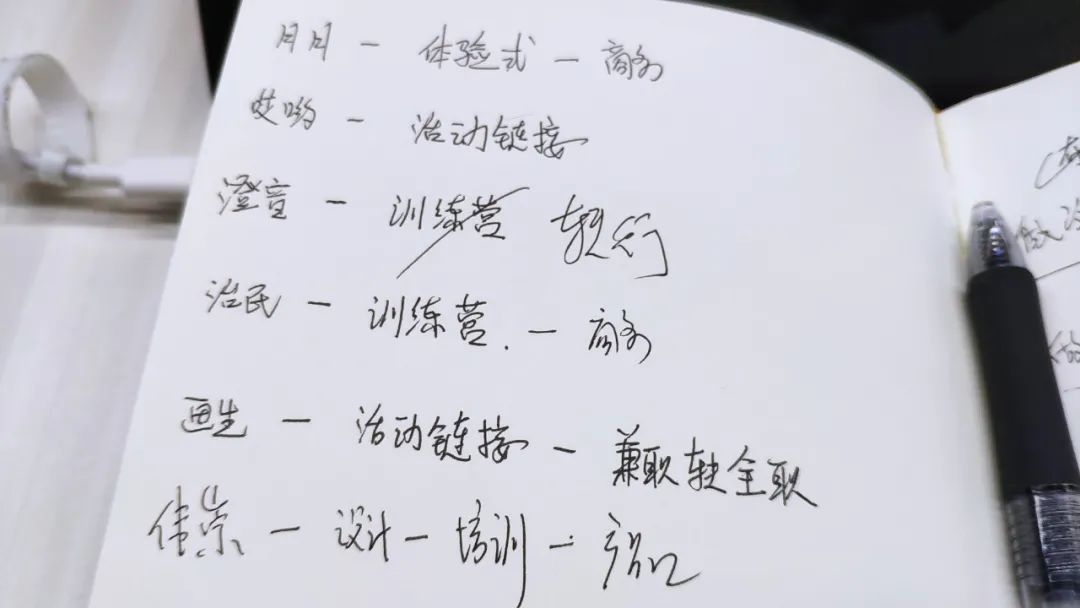 月月 — 体验式 — 商务
哎哟 — 活动链接
澄言 — 训练营
治民 — 训练营 — 商务
画生 — 活动链接 — 兼职转全职
伟崇 — 设计 — 培训 —